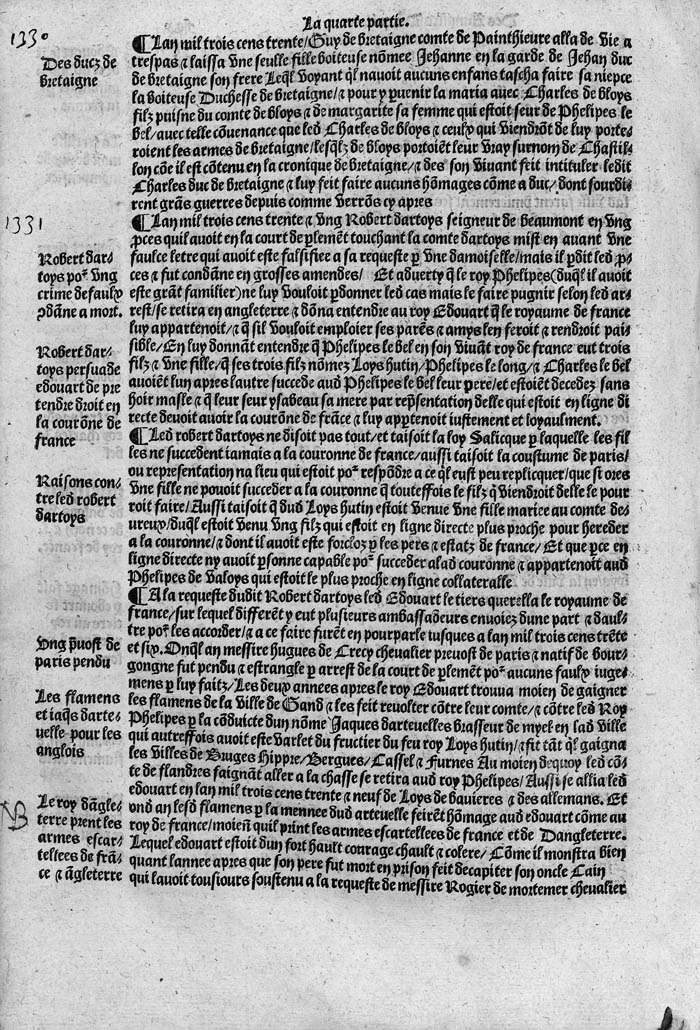 La quarte partie.
1330
Des ducz de
bretaigne
¶Lan mil trois cens trente/Guy de bretaigne comte de Painthieure alla de vie a
trespas ⁊ laissa vne seulle fille boiteuse nōmee Jehanne en la garde de Jehan duc
de bretaigne son frere Leq̄l voyant q̄l nauoit aucuns enfans tascha faire sa niepce
la boiteuse Duchesse de bretaigne/⁊ pour y p̱uenir la maria auec Charles de bloys
filz puisne du comte de bloys ⁊ de margarite sa femme qui estoit seur de Phelipes le
bel/auec telle cōuenance que led̄ Charles de bloys ⁊ ceulx qui viendrōt de luy porte-
roient les armes de bretaigne/lesq̄lz de bloys portoiēt leur vray surnom de Chastil-
lon cōe il est cōtenu en la cronique de bretaigne/⁊ des son viuant feit intituler ledit
Charles duc de bretaigne ⁊ luy feit faire aucuns hōmages cōme a duc/dont sourdi-
rent grās guerres depuis comme verrōs cy apres
1331
Robert dar-
toys poᵗ vng
crime de faulx
ꝯdāne a mort.
Robert dar-
toys persuade
edouart de pre
tendre droit en
la courōne de
france
¶Lan mil trois cens trente ⁊ vng Robert dartoys seigneur de beaumont en vng
ꝓces quil auoit en la court de p̱lemēt touchant la comte dartoys mist en auant vne
faulce letre qui auoit este falsifiee a sa requeste p̱ vne damoiselle/mais il p̱dit led̄ ꝓ-
ces ⁊ fut condāne en grosses amendes/ Et aduerty q̄ le roy Phelipes(duq̄l il auoit
este grāt familier)ne luy vouloit p̱donner led̄ cas mais le faire pugnir selon led̄ ar-
rest/se retira en angleterre ⁊ dōna entendre au roy Edouart q̄ le royaume de france
luy appartenoit/⁊ q̄ sil vouloit emploier ses parēs ⁊ amys len feroit ⁊ rendroit pai-
sible/En luy donnāt entendre q̄ Phelipes le bel en son viuāt roy de france eut trois
filz ⁊ vne fille/q̄ ses trois filz nōmez Loys hutin/Phelipes le long/⁊ Charles le bel
auoiēt lun apres lautre succede aud̄ Phelipes le bel leur pere/et estoiēt decedez sans
hoir masle ⁊ q̄ leur seur ysabeau sa mere par rep̄sentation delle qui estoit en ligne di
recte deuoit auoir la courōne de frāce ⁊ luy app̱tenoit iustement et loyaulment.
Raisons con-
tre led̄ robert
dartoys
¶Led̄ robert dartoys ne disoit pas tout/et taisoit la loy Salicque p̱ laquelle les fil
les ne succedent iamais a la couronne de france/aussi taisoit la coustume de paris/
ou representation na lieu qui estoit poᵗ respōdre a ce q̄l eust peu replicquer/que si ores
vne fille ne pouoit succeder a la couronne q̄ touteffois le filz q̄ viendroit delle le pour
roit faire/Aussi taisoit q̄ dud̄ Loys hutin estoit venue vne fille mariee au comte de-
ureux/duq̄l estoit venu vng filz qui estoit en ligne directe plus proche pour hereder
a la couronne/⁊ dont il auoit este forcloz p̱ les pers ⁊ estatz de france/ Et que p̱ce en
ligne directe ny auoit p̱sonne capable poᵗ succeder alad̄ couronne ⁊ appartenoit aud̄
Phelipes de Valoys qui estoit le plus proche en ligne collateralle
Vng p̄uost de
paris pendu
Les flamens
et iaq̄s darte-
uelle pour les
anglois
NB
Le roy dāgle-
terre prent les
armes escar-
tellees de frā-
ce ⁊ āgleterre
¶A la requeste dudit Robert dartoys led̄ Edouart le tiers querella le royaume de
france/sur lequel differēt y eut plusieurs ambassadeurs enuoiez dune part ⁊ daul-
tre poᵗ les accorder/⁊ a ce faire furēt en pourparle iusques a lan mil trois cens trēte
et six. Onq̄l an messire hugues de Crecy cheualier preuost de paris ⁊ natif de bour-
gongne fut pendu ⁊ estrangle p̱ arrest de la court de p̱lemēt poᵗ aucuns faulx iuge-
mens p̱ luy faitz/Les deux annees apres le roy Edouart trouua moien de gaigner
les flamens de la ville de Gand ⁊ les feit reuolter cōtre leur comte/⁊ cōtre led̄ Roy
Phelipes p̱ la cōduicte dun nōme Jaques dartevelles brasseur de myel en lad̄ ville
qui autreffois auoit este varlet du fructier du feu roy Loys hutin/⁊ fit tāt q̄l gaigna
les villes de Bruges Hippre/Bergues/Cassel ⁊ Furnes Au moien dequoy led̄ cō-
te de flandres faignāt aller a la chasse se retira aud̄ roy Phelipes/Aussi se allia led̄
edouart en lan mil trois cens trente ⁊ neuf de Loys de bauieres ⁊ des allemans. Et
ond̄ an lesd̄ flamens p̱ la mennee dud̄ arteuelle feirēt hōmage aud̄ edouart cōme au
roy de france/moiēn̄ quil print les armes escartellees de france et de Dangleterre.
Lequel edouart estoit dun fort hault courage chault ⁊ colere/ Cōme il monstra bien
quant lannee apres que son pere fut mort en prison feit decapiter son oncle Cain
qui lauoit tousiours soustenu a la requeste de messire Rogier de mortemer cheualier